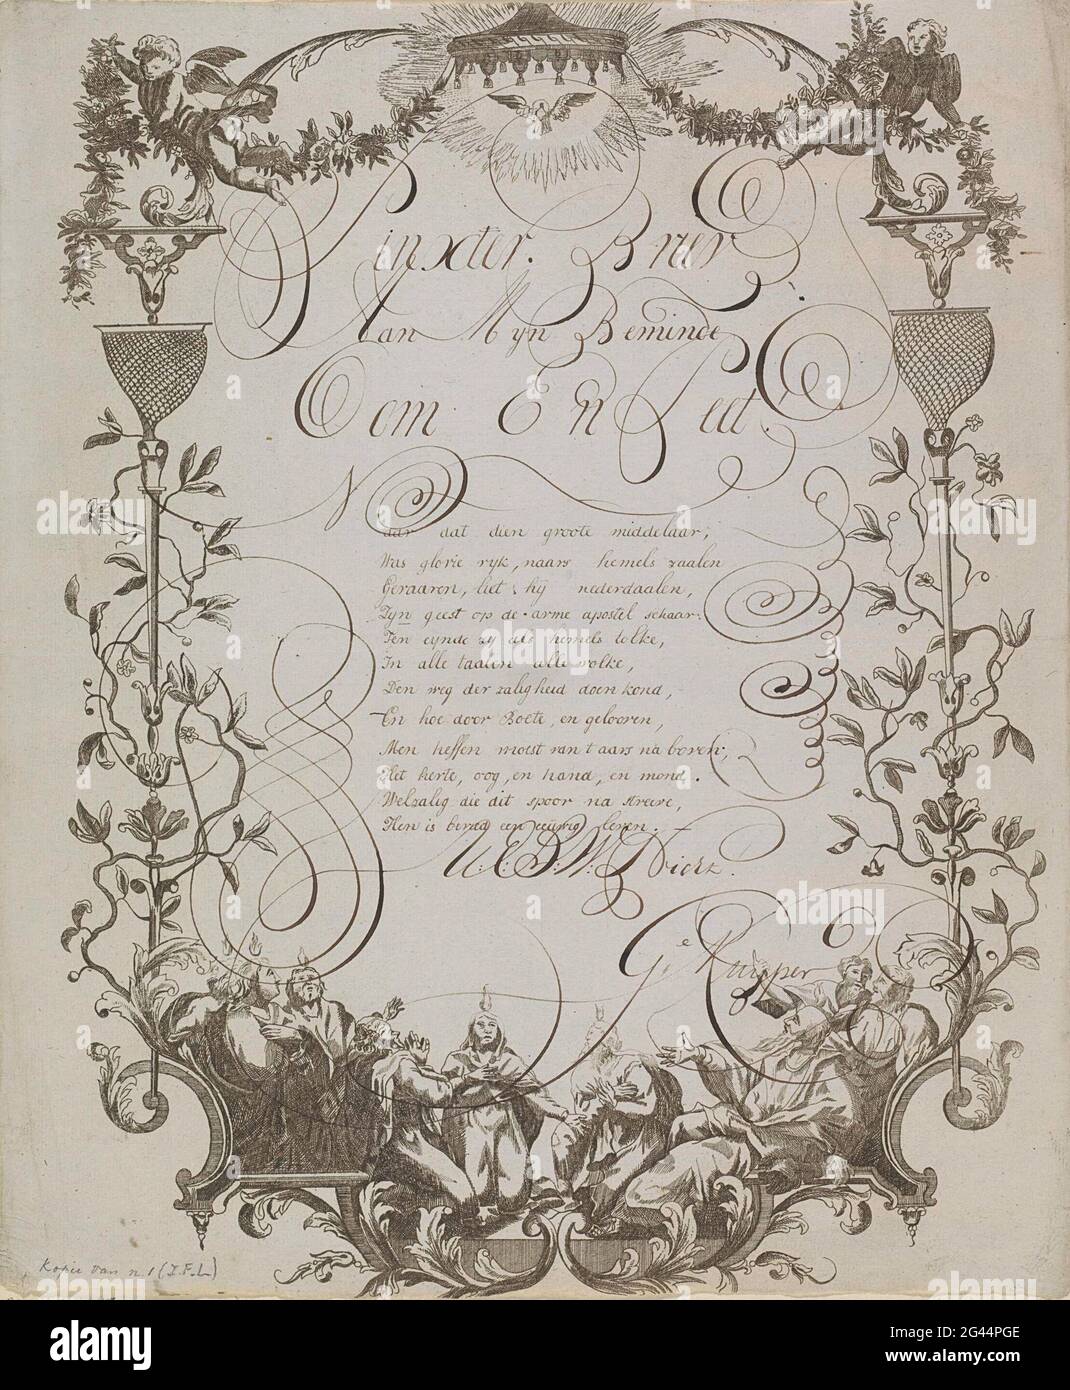 Pinxter. Brief
Aan Myn Beminde
Oom En Peet
Naar dat dien groote middelaar,
Was glorie ryk, naars hemels zaalen
Gevaaren, liet hy nederdaalen,
Zyn geest op de arme apostel schaar.
Ten eynde zy als hemels tolke,
In alle taalen alle volke,
Den weg der zaligheid doen kond,
En hoe door Boete, en gelooven,
Men heffen moest van t aars na boven,
Het herte, oog, en hand, en mond.
Welzalig die dit spoor na streeve,
Hen is bereid een eeuwig leven.
U: E: D: W: Dienr.
Ge Kuyper
Kopie van n. 1 (I.F.L)
alamy
Image ID: 2G44PGE
www.alamy.com